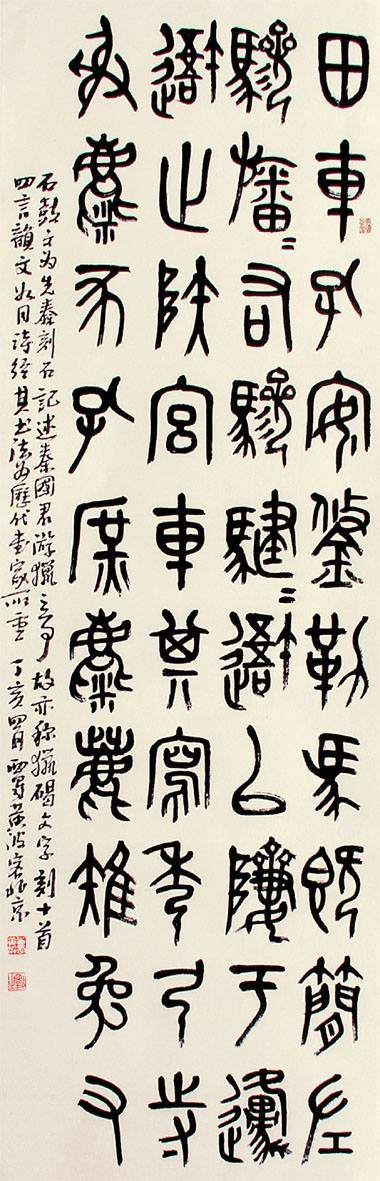 田車孔安鋚勒馬既簡左
驂旛=右驂騝=吾以隮于邍
吾止陜宮車其寫秀弓寺
射麋豕孔庶麀鹿雉兔又
石鼓文为先秦刻石記述秦國君游獵之事故亦称獵碣文字刻十首
四言韻文如同詩經其书法为歷代书家所重丁亥四月西蜀黄波客北京